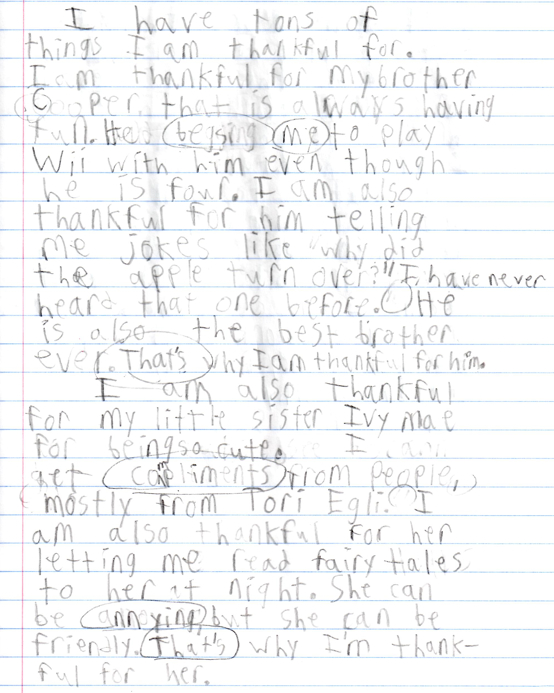 I have tons of
things I am thankful for.
I am thankful for my brother
Cooper, that is always having
fun. He begsing me to play
Wii with him even though
he is four. I am also
thankful for him telling
me jokes like "why did
the apple turn over?" I have never
heard that one before. He
is also the best brother
ever. That's why I am thankful for him.
I am also thankful
for my little sister Ivy Mae
for being so cute. I
get compliments from people,
mostly from Tori Egli. I
am also thankful for her
letting me read fairy tales
to her at night. She can
be annoying but she can be
friendly. That's why I'm thank-
ful for her.